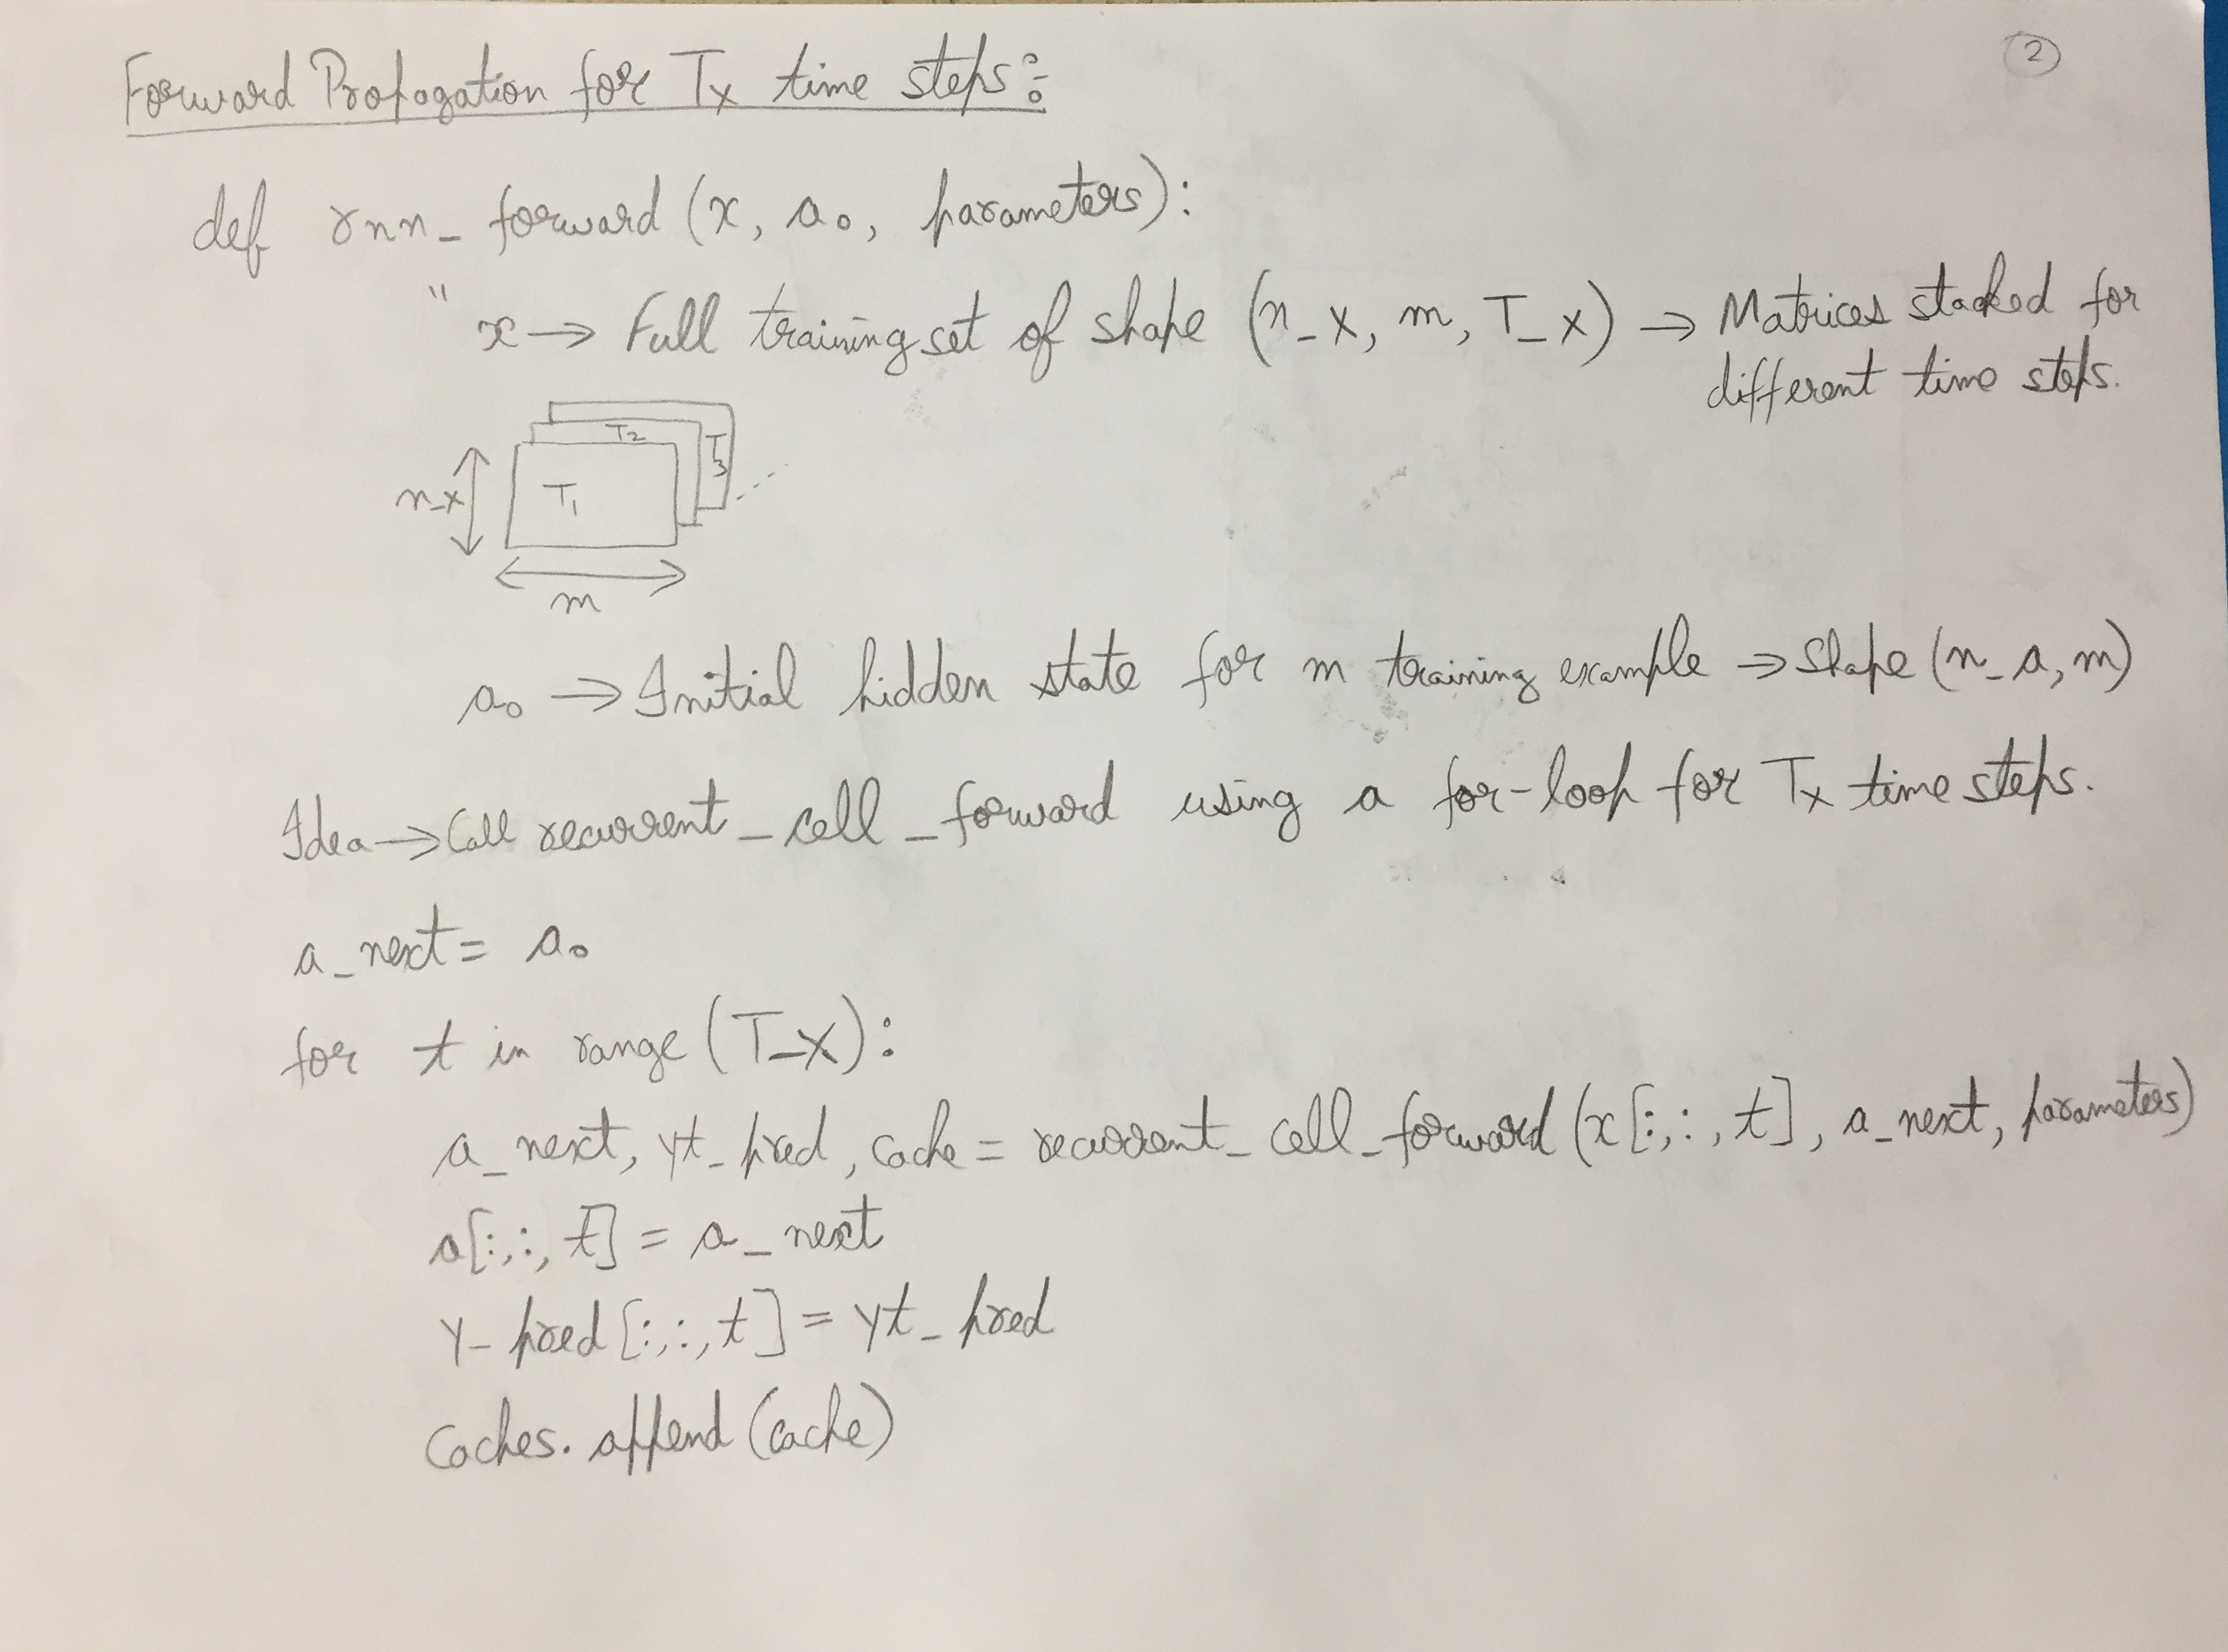 2
Forward Propagation for Tx time steps:
def rnn_forward (x, a₀, parameters):
" x → Full training set of shape (n_x, m, T_x) → Matrices stacked for
different time steps.
T2
T3
n_x
T1
m
a₀ → Initial hidden state for m training example → Shape (n_a, m)
Idea → Call recurrent_cell_forward using a for-loop for Tx time steps.
a_next = a₀
for t in range (T_x):
a_next, yt_pred, cache = recurrent_cell_forward (x[:,:,t], a_next, parameters)
a[:,:,t] = a_next
y_pred[:,:,t] = yt_pred
Caches.append(cache)